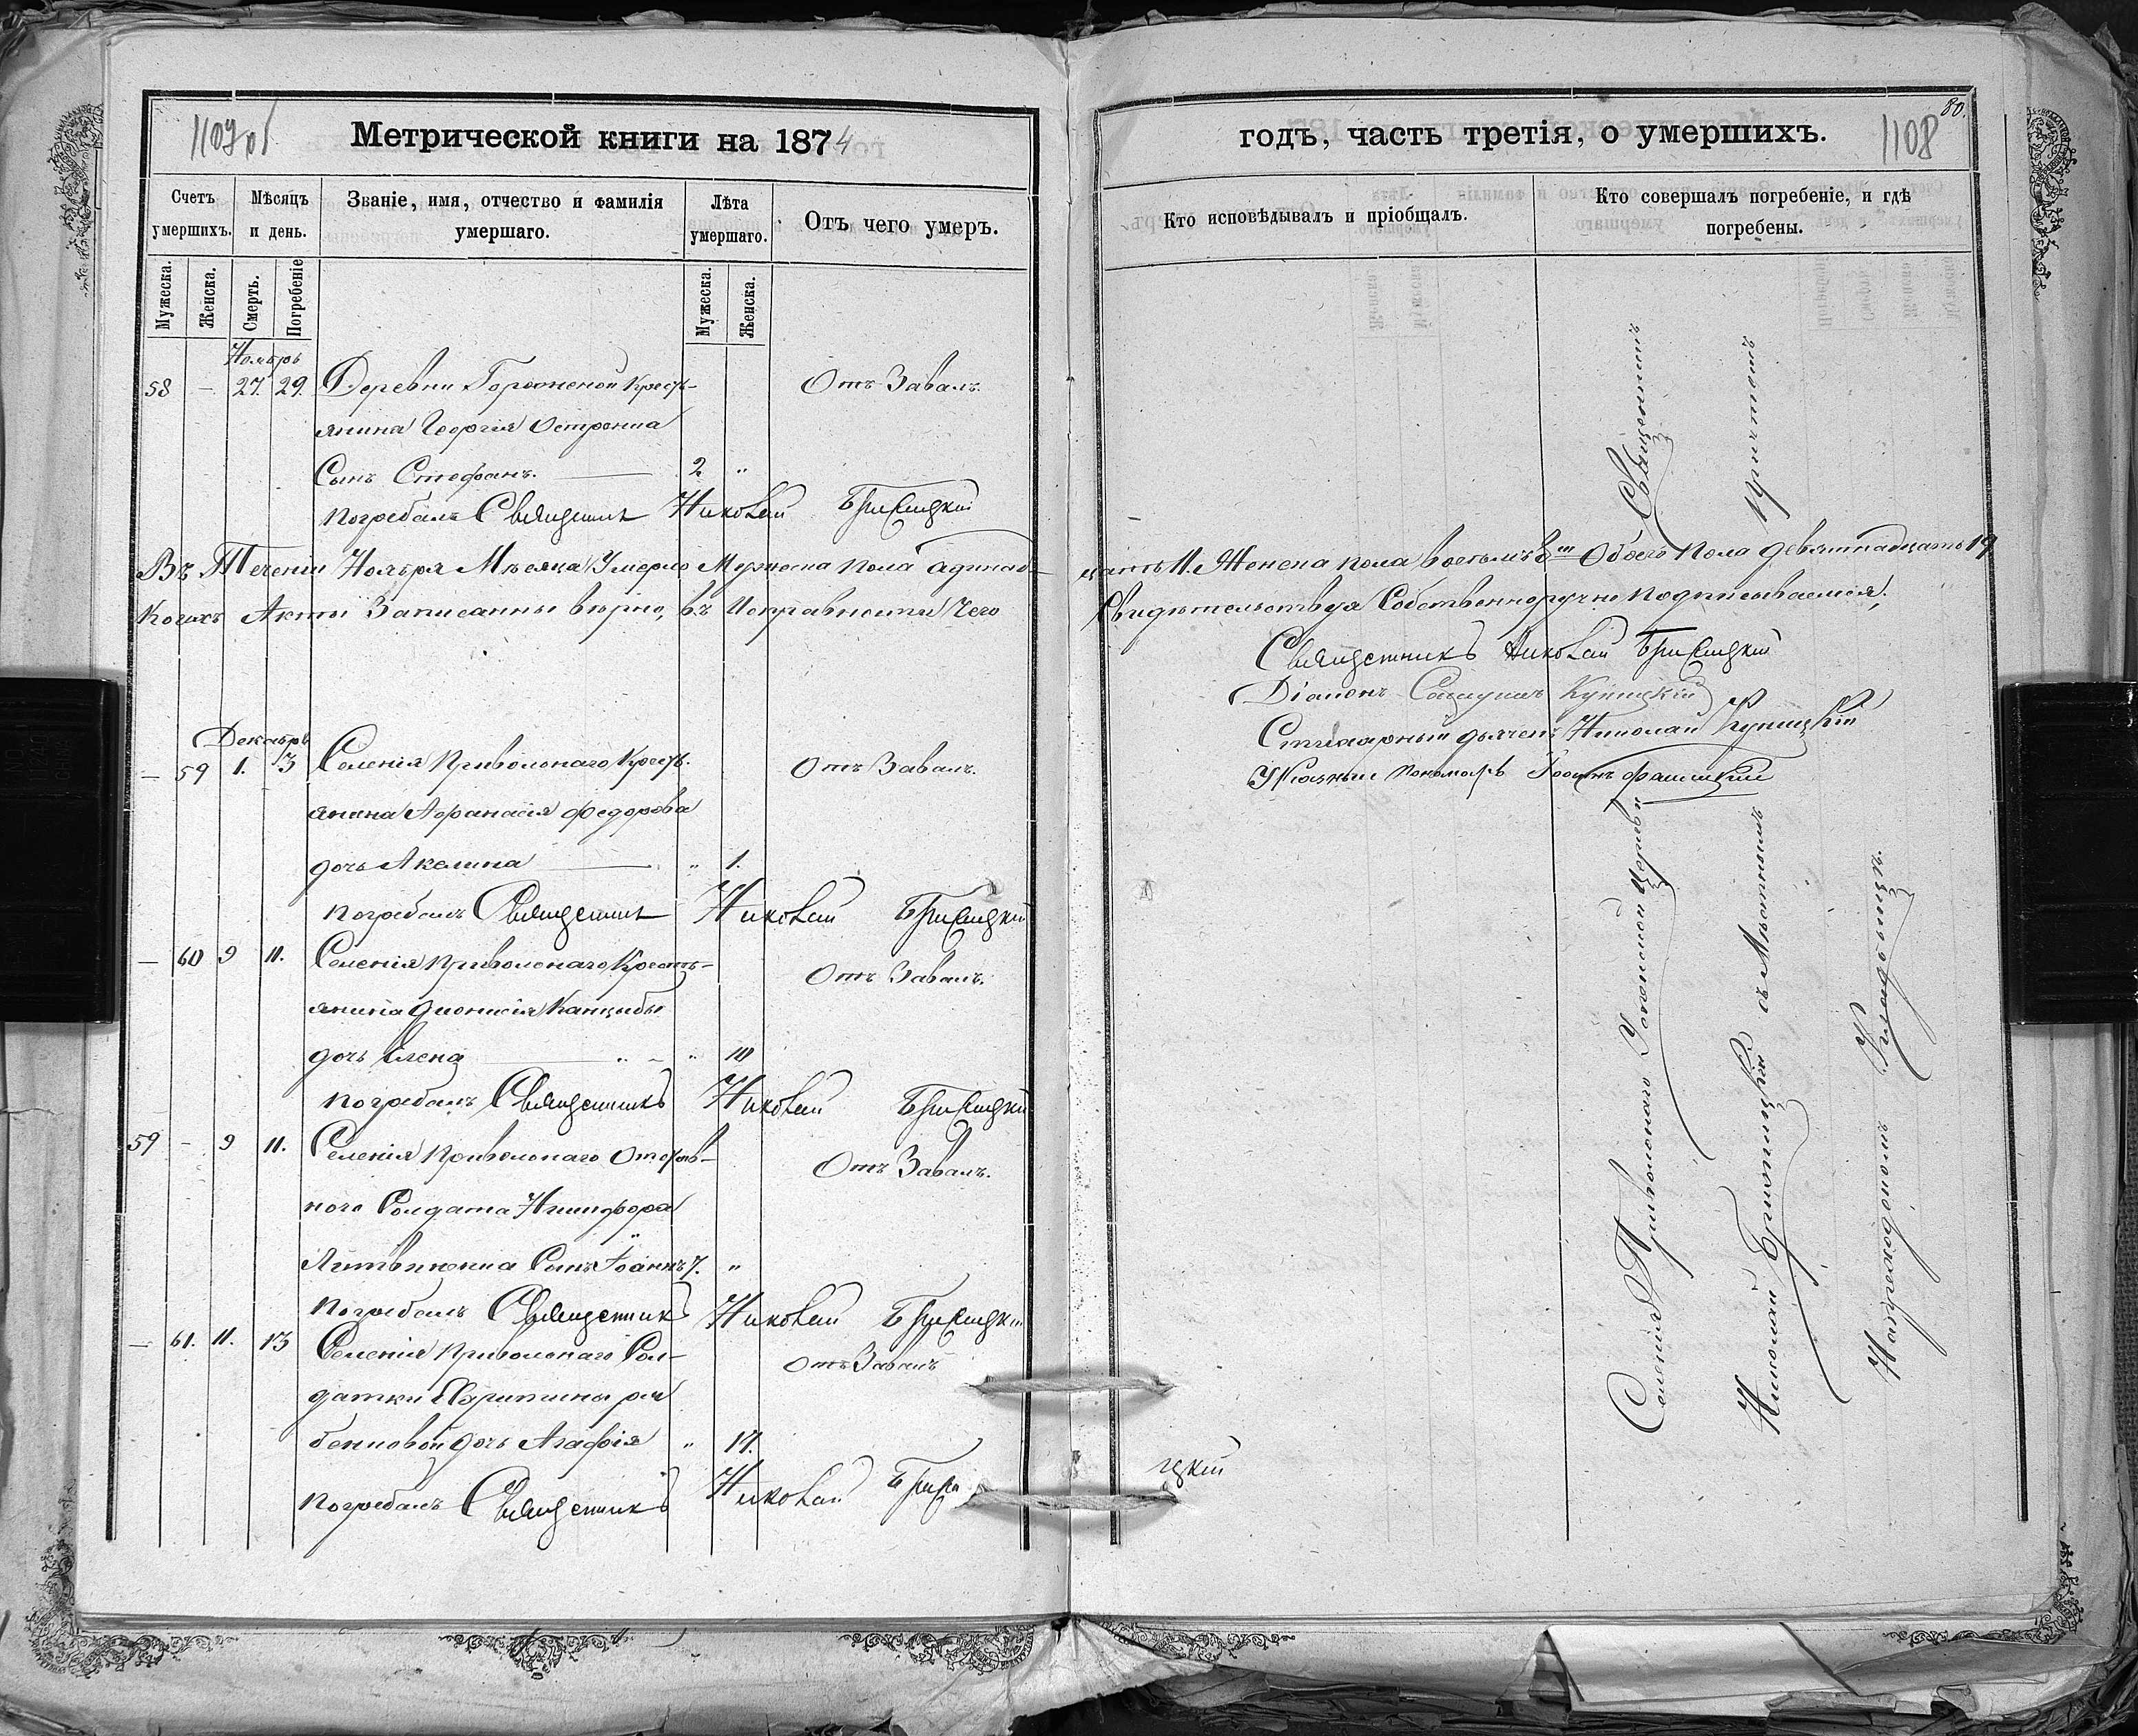 1107 об
Метрической книги на 1874
Счетъ умершихъ.
Мѣсяцъ и день.
Званіе, имя, отчество и фамилія умершаго.
Лѣта умершаго.
Отъ чего умеръ.
Мужеска.
Женска.
Смерть.
Погребеніе
Мужеска.
Женска.
Ноябрь
58 – 27. 29. Деревни Гороженой Кресть- Отъ Завалъ.
янина Георгія
Сынъ Стефанъ. 2. "
Погребалъ Священникъ Николай
Въ Теченіи Ноября Мѣсяца Умерло Мужеска пола одинад-
Коихъ Акты Записанны вѣрно, въ Исправности Чего
Декабрь
– 59 1. 3 Селенія Привольнаго Крест. Отъ Завалъ.
янина Афанасія Федорова
дочь Акелина " 1.
Погребалъ Священникъ Николай
– 60 9 11. Селенія Привольнаго Кресть- Отъ Завалъ.
янина Дионисія
дочь Елена " 10
Погребалъ Священникъ Николай
59 – 9 11. Селенія Привольнаго Отстав- Отъ Завалъ.
ного Солдата Никифора
Литвиненка Сынъ Іоаннъ 7. "
Погребалъ Священникъ Николай
– 61. 11. 13 Селенія Привольнаго Сол- Отъ Завалъ
датки
дочь Агафія " 17.
Погребалъ Священникъ Николай
80.
1108
годъ, часть третія, о умершихъ.
Кто исповѣдывалъ и пріобщалъ.
Кто совершалъ погребеніе, и гдѣ погребены.
цать 11. Женска пола восемь 8. Обоего Пола девятнадцать 19
Свидѣтельствуя Собственноручно Подписываемся;
Священникъ Николай
Діаконъ Купицкій
Стихарный дьячекъ Николай Купицкій
Пономарь Іоаннъ
Священникъ
Причтомъ
Селенія Привольнаго Успенской Церкви
Николай съ Мѣстнымъ
На приходскомъ Кладбищѣ.
цкій